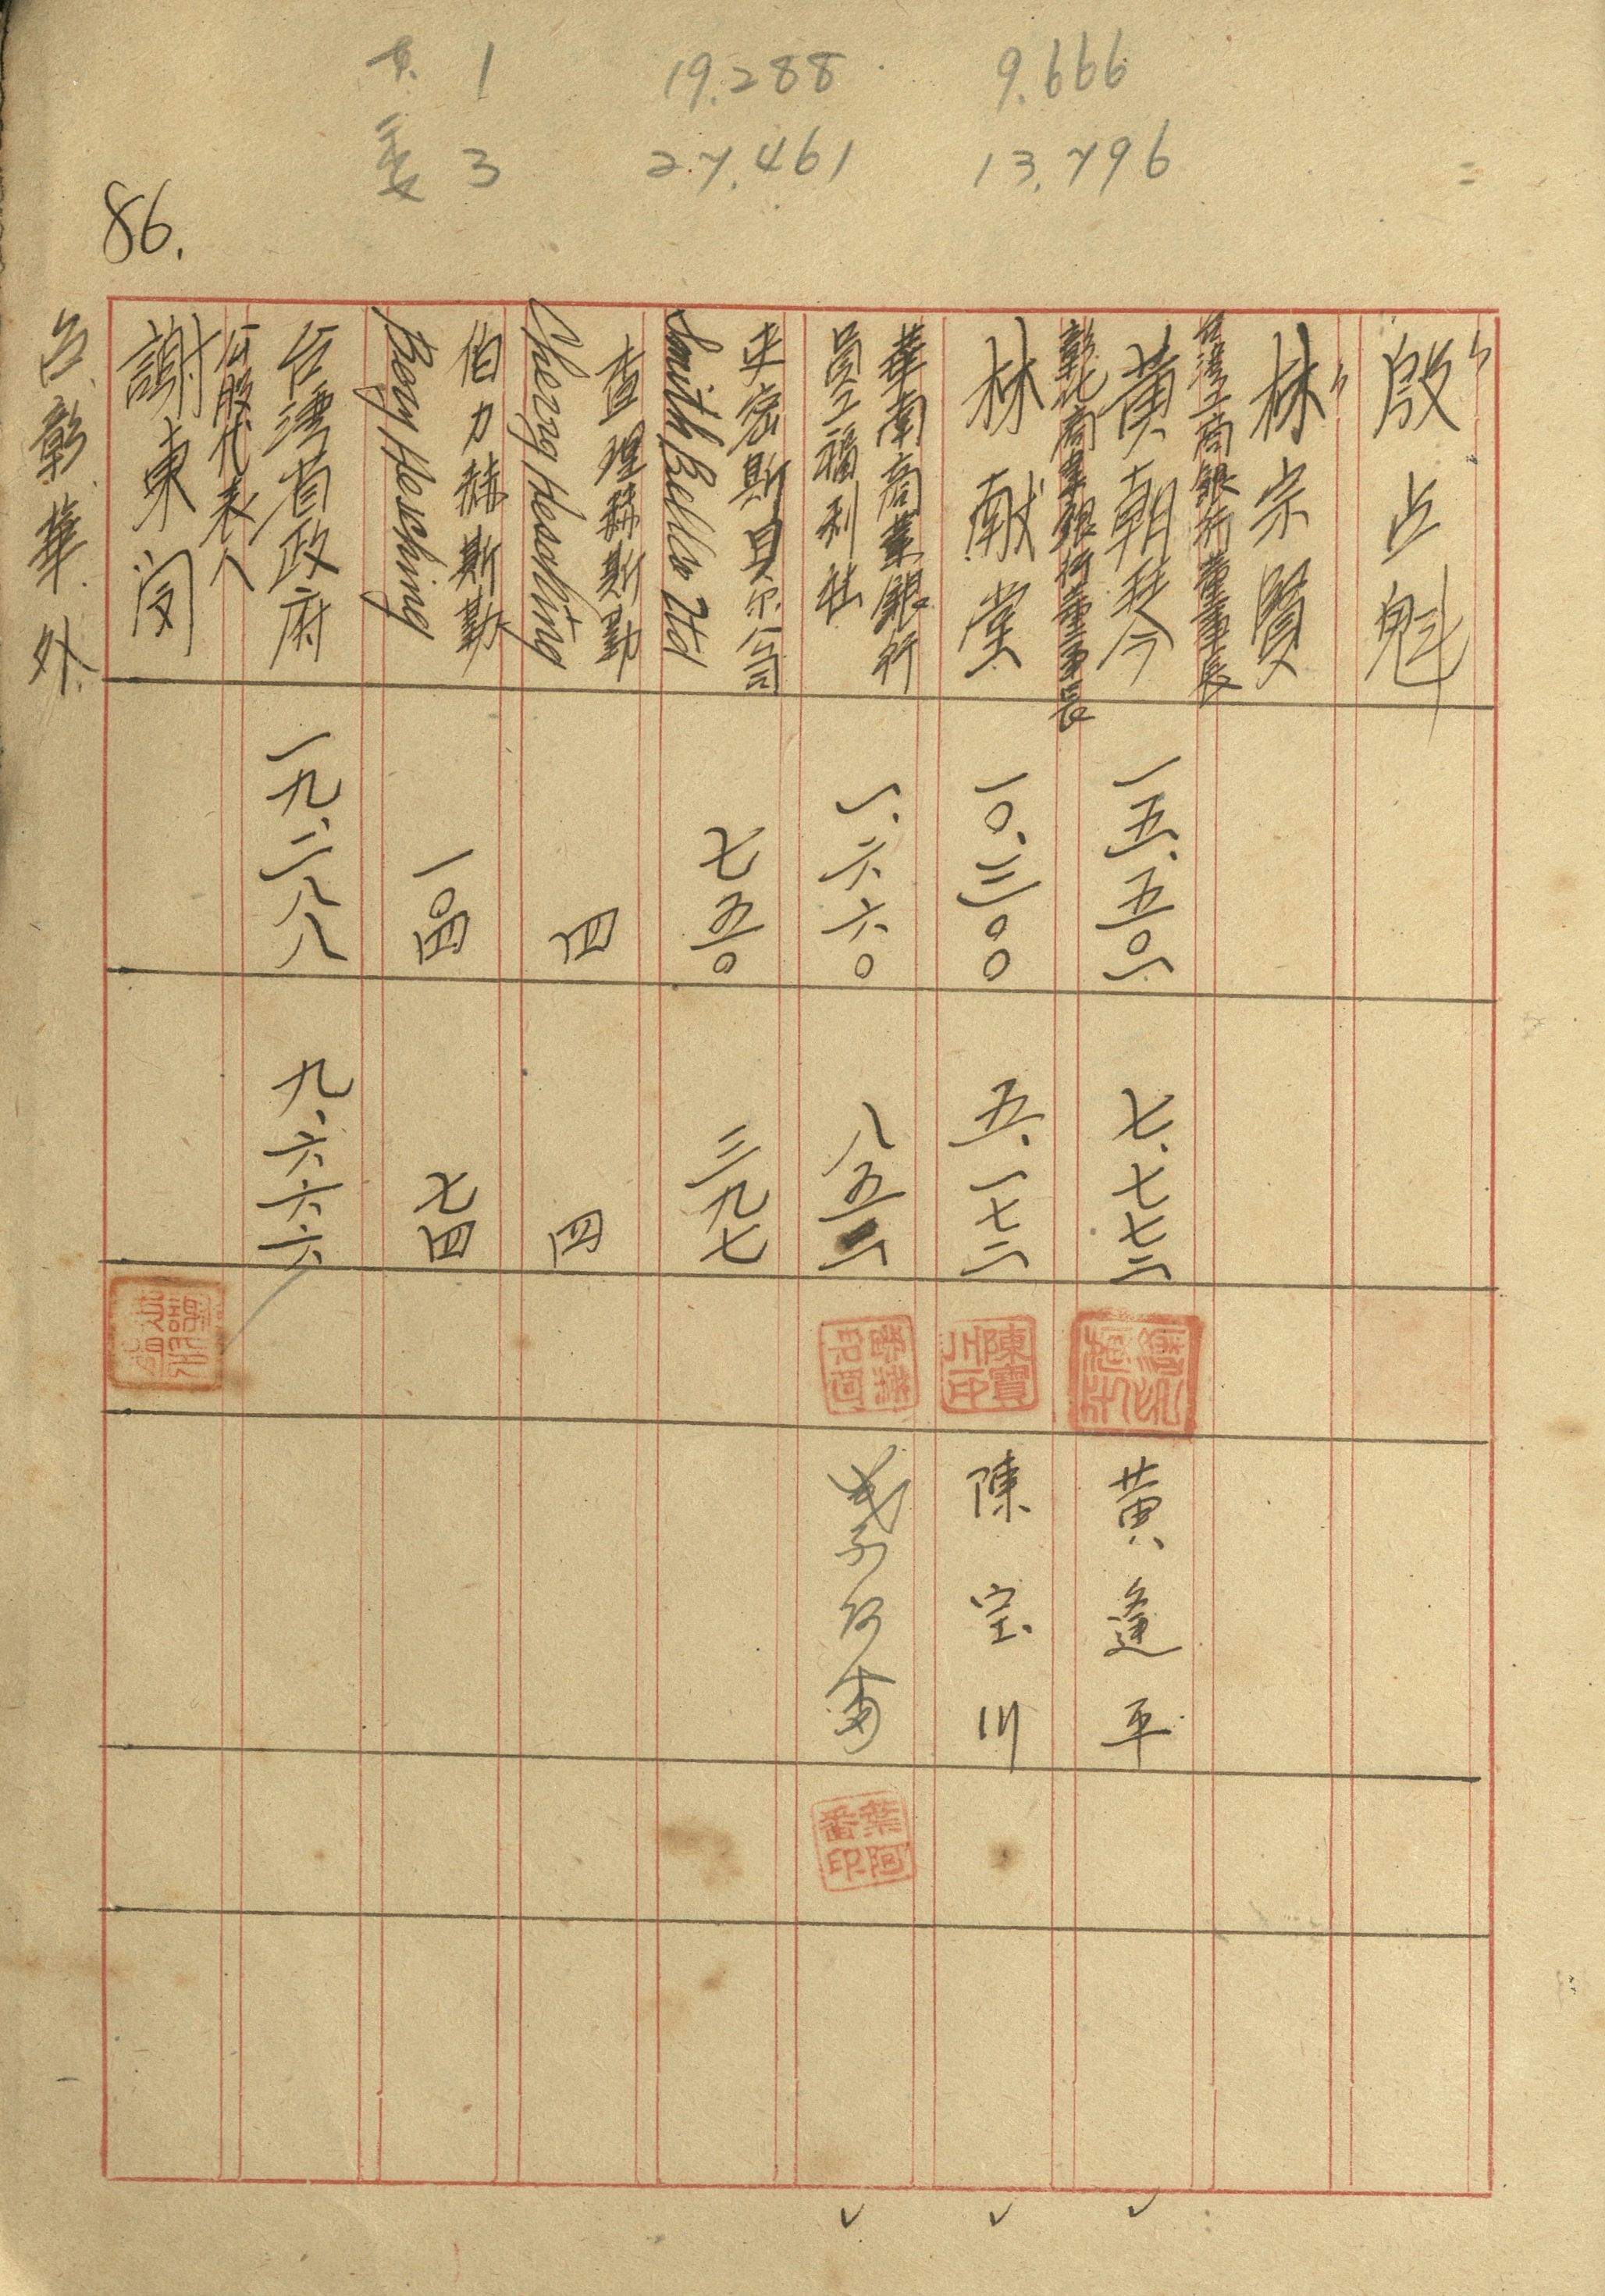 1 19.288 9.666
委 3 27.461 13.796
86.
〃
殷占魁
〃
林宗賢
台湾工商銀行董事長
黄朝琴
一五.五〇一
七.七七二
黄逢平
彰化商業銀行董事長
林献堂
一〇.三〇〇
五.一七二
陳寶川印
陳宝川
華南商業銀行
員工福利社
一.六六〇
八五二
葉阿番印
史密斯貝尔公司
七五〇
三九七
查理赫斯勤
四
四
伯力赫斯勤
Bory Hesching
一〇四
七四
台湾省政府
一九.二八八
九.六六六
公股代表人
謝東閔
台.彰.華.外.